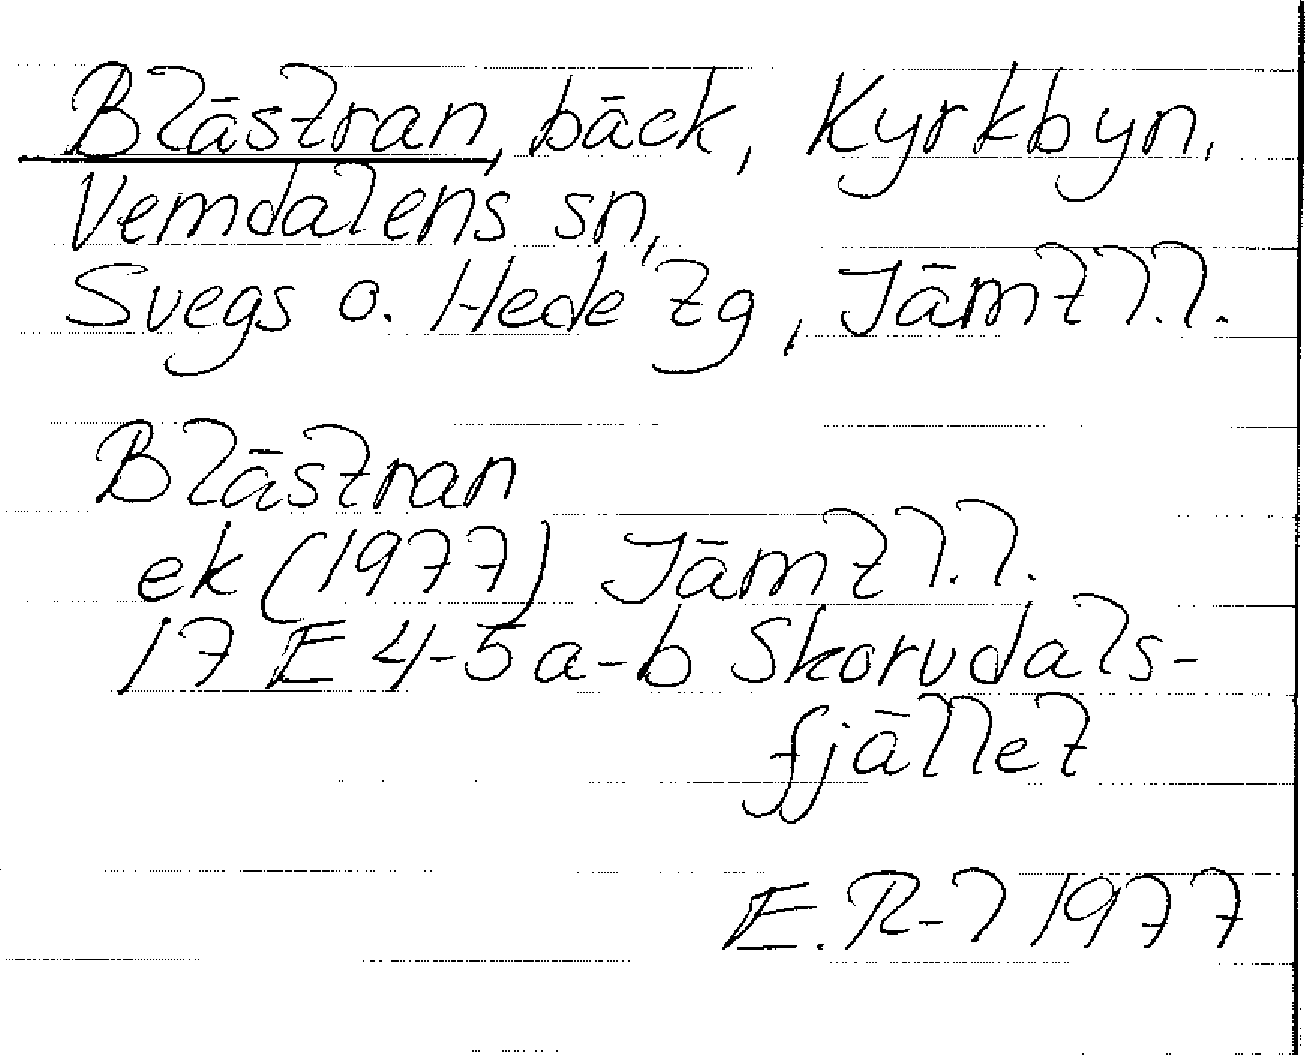 Blästran, bäck, Kyrkbyn,
Vemdalens sn,
Svegs o. Hede tg, Jämtl.l.
Blästran
ek (1977) Jämtl.l.
17 E 4-5 a-b Skorvdals-
fjället
E.R-l 1977